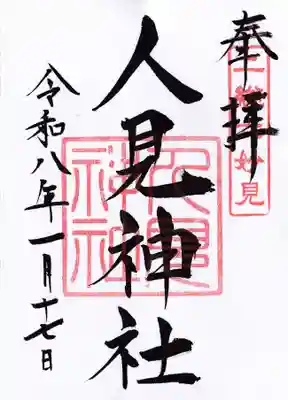 奉拝
上総妙見
人見神社
人見神社
令和八年一月十七日